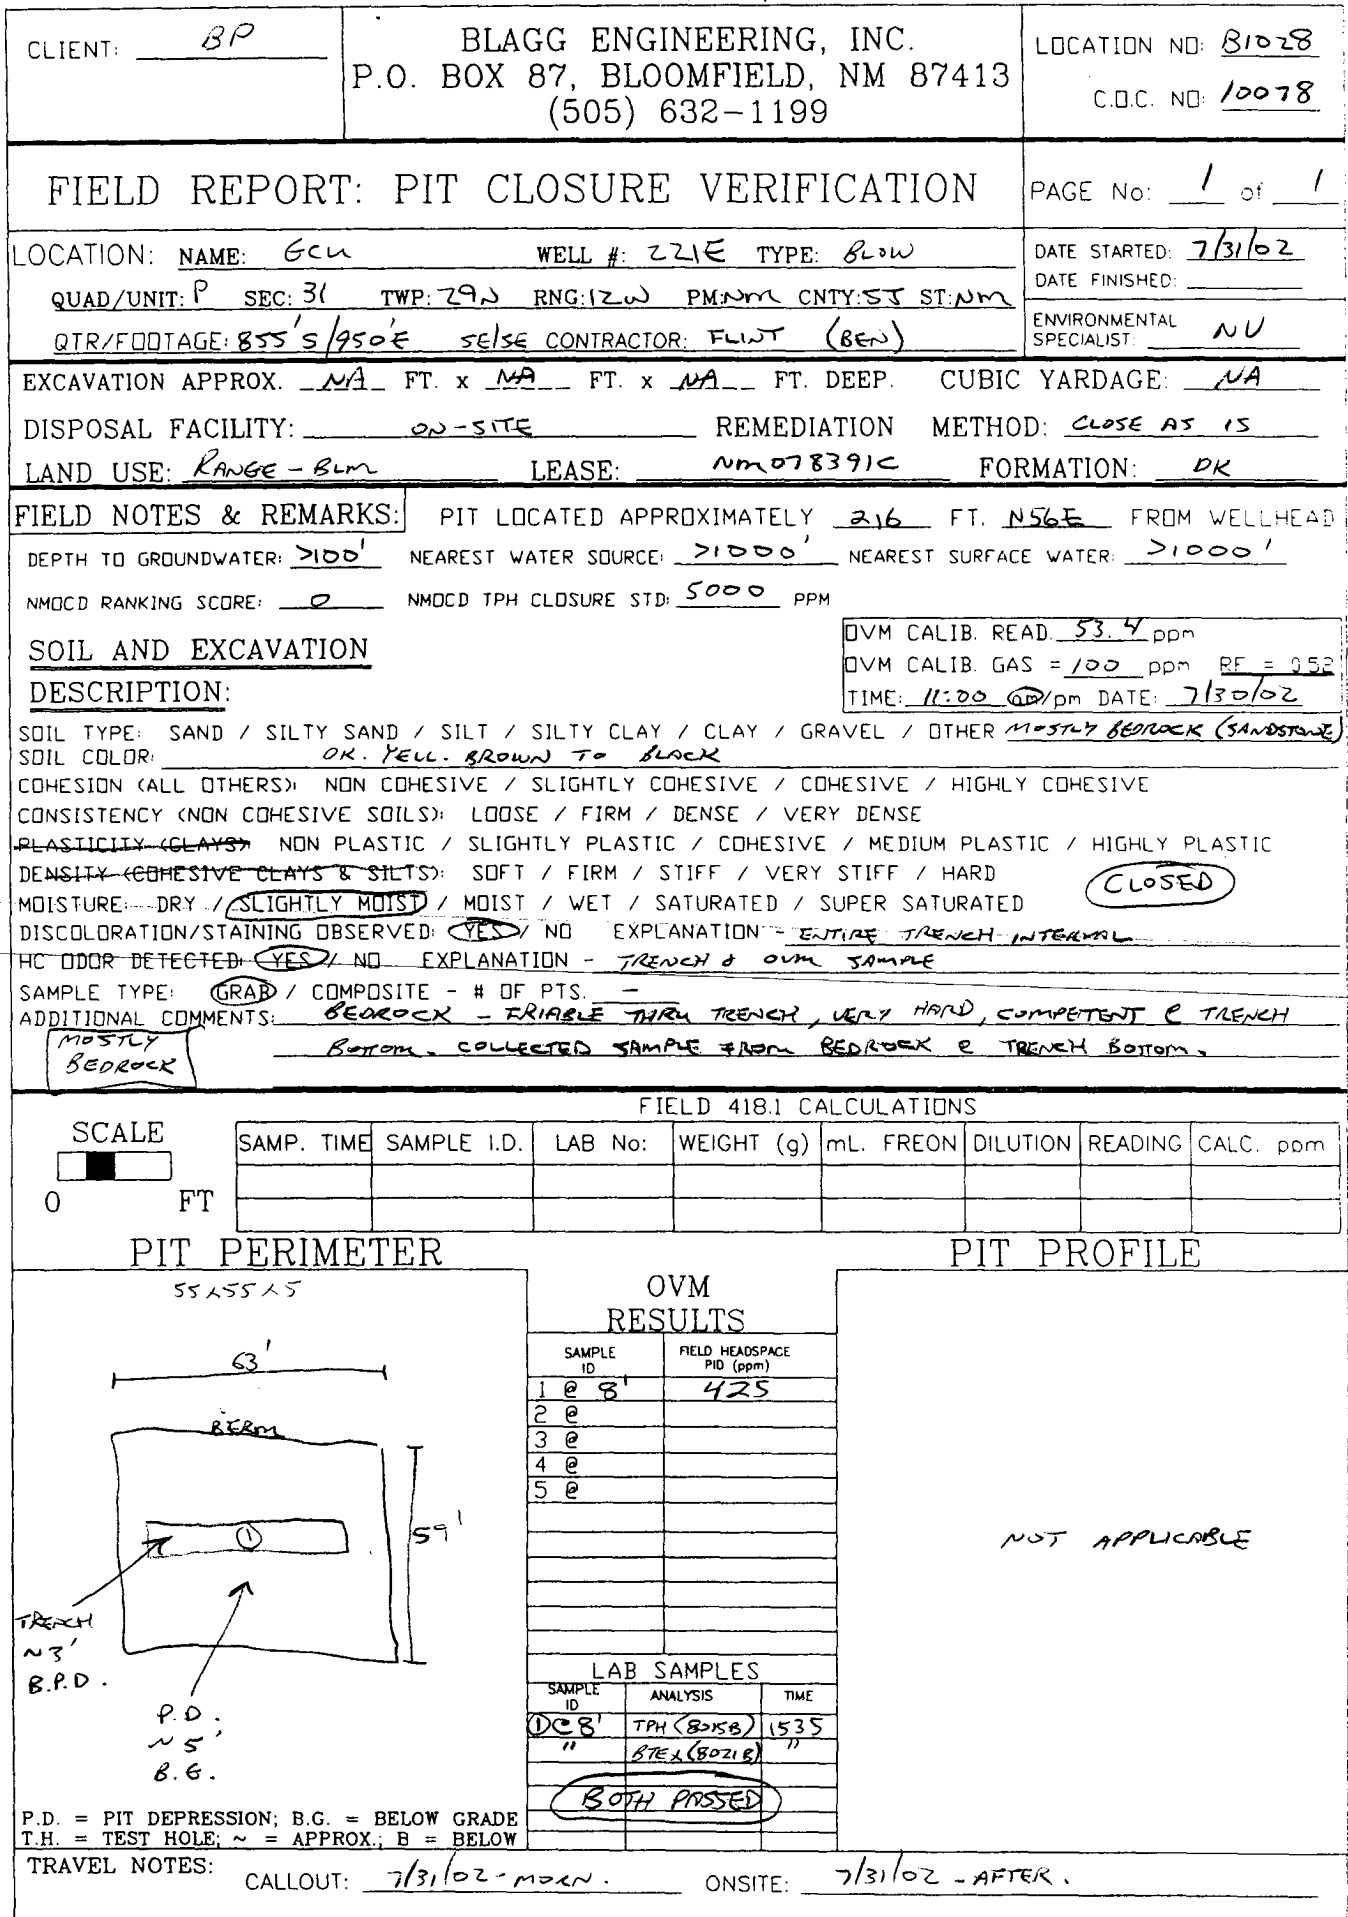 CLIENT: BP
BLAGG ENGINEERING, INC.
P.O. BOX 87, BLOOMFIELD, NM 87413
(505) 632-1199
LOCATION NO: B1028
C.O.C. NO: 10078
FIELD REPORT: PIT CLOSURE VERIFICATION
PAGE No: 1 of 1
LOCATION: NAME: GCU WELL #: 221E TYPE: BLOW
QUAD/UNIT: P SEC: 31 TWP: 29N RNG: 12W PM: NM CNTY: SJ ST: NM
QTR/FOOTAGE: 855'S/950'E SE/SE CONTRACTOR: FLINT (BEN)
DATE STARTED: 7/31/02
DATE FINISHED:
ENVIRONMENTAL SPECIALIST: NV
EXCAVATION APPROX. NA FT. x NA FT. x NA FT. DEEP. CUBIC YARDAGE: NA
DISPOSAL FACILITY: ON-SITE REMEDIATION METHOD: CLOSE AS IS
LAND USE: RANGE - BLM LEASE: NM078391C FORMATION: DK
FIELD NOTES & REMARKS: PIT LOCATED APPROXIMATELY 216 FT. N56E FROM WELLHEAD
DEPTH TO GROUNDWATER: >100' NEAREST WATER SOURCE: >1000' NEAREST SURFACE WATER: >1000'
NMOCD RANKING SCORE: 0 NMOCD TPH CLOSURE STD: 5000 PPM
SOIL AND EXCAVATION
DESCRIPTION:
OVM CALIB. READ. 53.4 ppm
OVM CALIB. GAS = 100 ppm RF = 0.52
TIME: 11:00 am/pm DATE: 7/30/02
SOIL TYPE: SAND / SILTY SAND / SILT / SILTY CLAY / CLAY / GRAVEL / OTHER MOSTLY BEDROCK (SANDSTONE)
SOIL COLOR: DK. YELL. BROWN TO BLACK
COHESION (ALL OTHERS): NON COHESIVE / SLIGHTLY COHESIVE / COHESIVE / HIGHLY COHESIVE
CONSISTENCY (NON COHESIVE SOILS): LOOSE / FIRM / DENSE / VERY DENSE
PLASTICITY (CLAYS): NON PLASTIC / SLIGHTLY PLASTIC / COHESIVE / MEDIUM PLASTIC / HIGHLY PLASTIC
DENSITY (COHESIVE CLAYS & SILTS): SOFT / FIRM / STIFF / VERY STIFF / HARD
CLOSED
MOISTURE: DRY / SLIGHTLY MOIST / MOIST / WET / SATURATED / SUPER SATURATED
DISCOLORATION/STAINING OBSERVED: YES / NO EXPLANATION - ENTIRE TRENCH INTERVAL
HC ODOR DETECTED: YES / NO EXPLANATION - TRENCH & OVM SAMPLE
SAMPLE TYPE: GRAB / COMPOSITE - # OF PTS. -
ADDITIONAL COMMENTS: BEDROCK - FRIABLE THRU TRENCH, VERY HARD, COMPETENT @ TRENCH
BOTTOM. COLLECTED SAMPLE FROM BEDROCK @ TRENCH BOTTOM.
MOSTLY
BEDROCK
FIELD 418.1 CALCULATIONS
SCALE
0 FT
SAMP. TIME SAMPLE I.D. LAB No: WEIGHT (g) mL. FREON DILUTION READING CALC. ppm
PIT PERIMETER
PIT PROFILE
55x55x5
63'
BERM
59'
1
TRENCH
~3'
B.P.D.
P.D.
~5'
B.G.
P.D. = PIT DEPRESSION; B.G. = BELOW GRADE
T.H. = TEST HOLE; ~ = APPROX.; B = BELOW
OVM
RESULTS
SAMPLE ID FIELD HEADSPACE PID (ppm)
1 @ 8' 425
2 @
3 @
4 @
5 @
LAB SAMPLES
SAMPLE ID ANALYSIS TIME
①@8' TPH (8015B) 1535
" BTEX (8021B) "
BOTH PASSED
NOT APPLICABLE
TRAVEL NOTES: CALLOUT: 7/31/02 - MORN. ONSITE: 7/31/02 - AFTER.